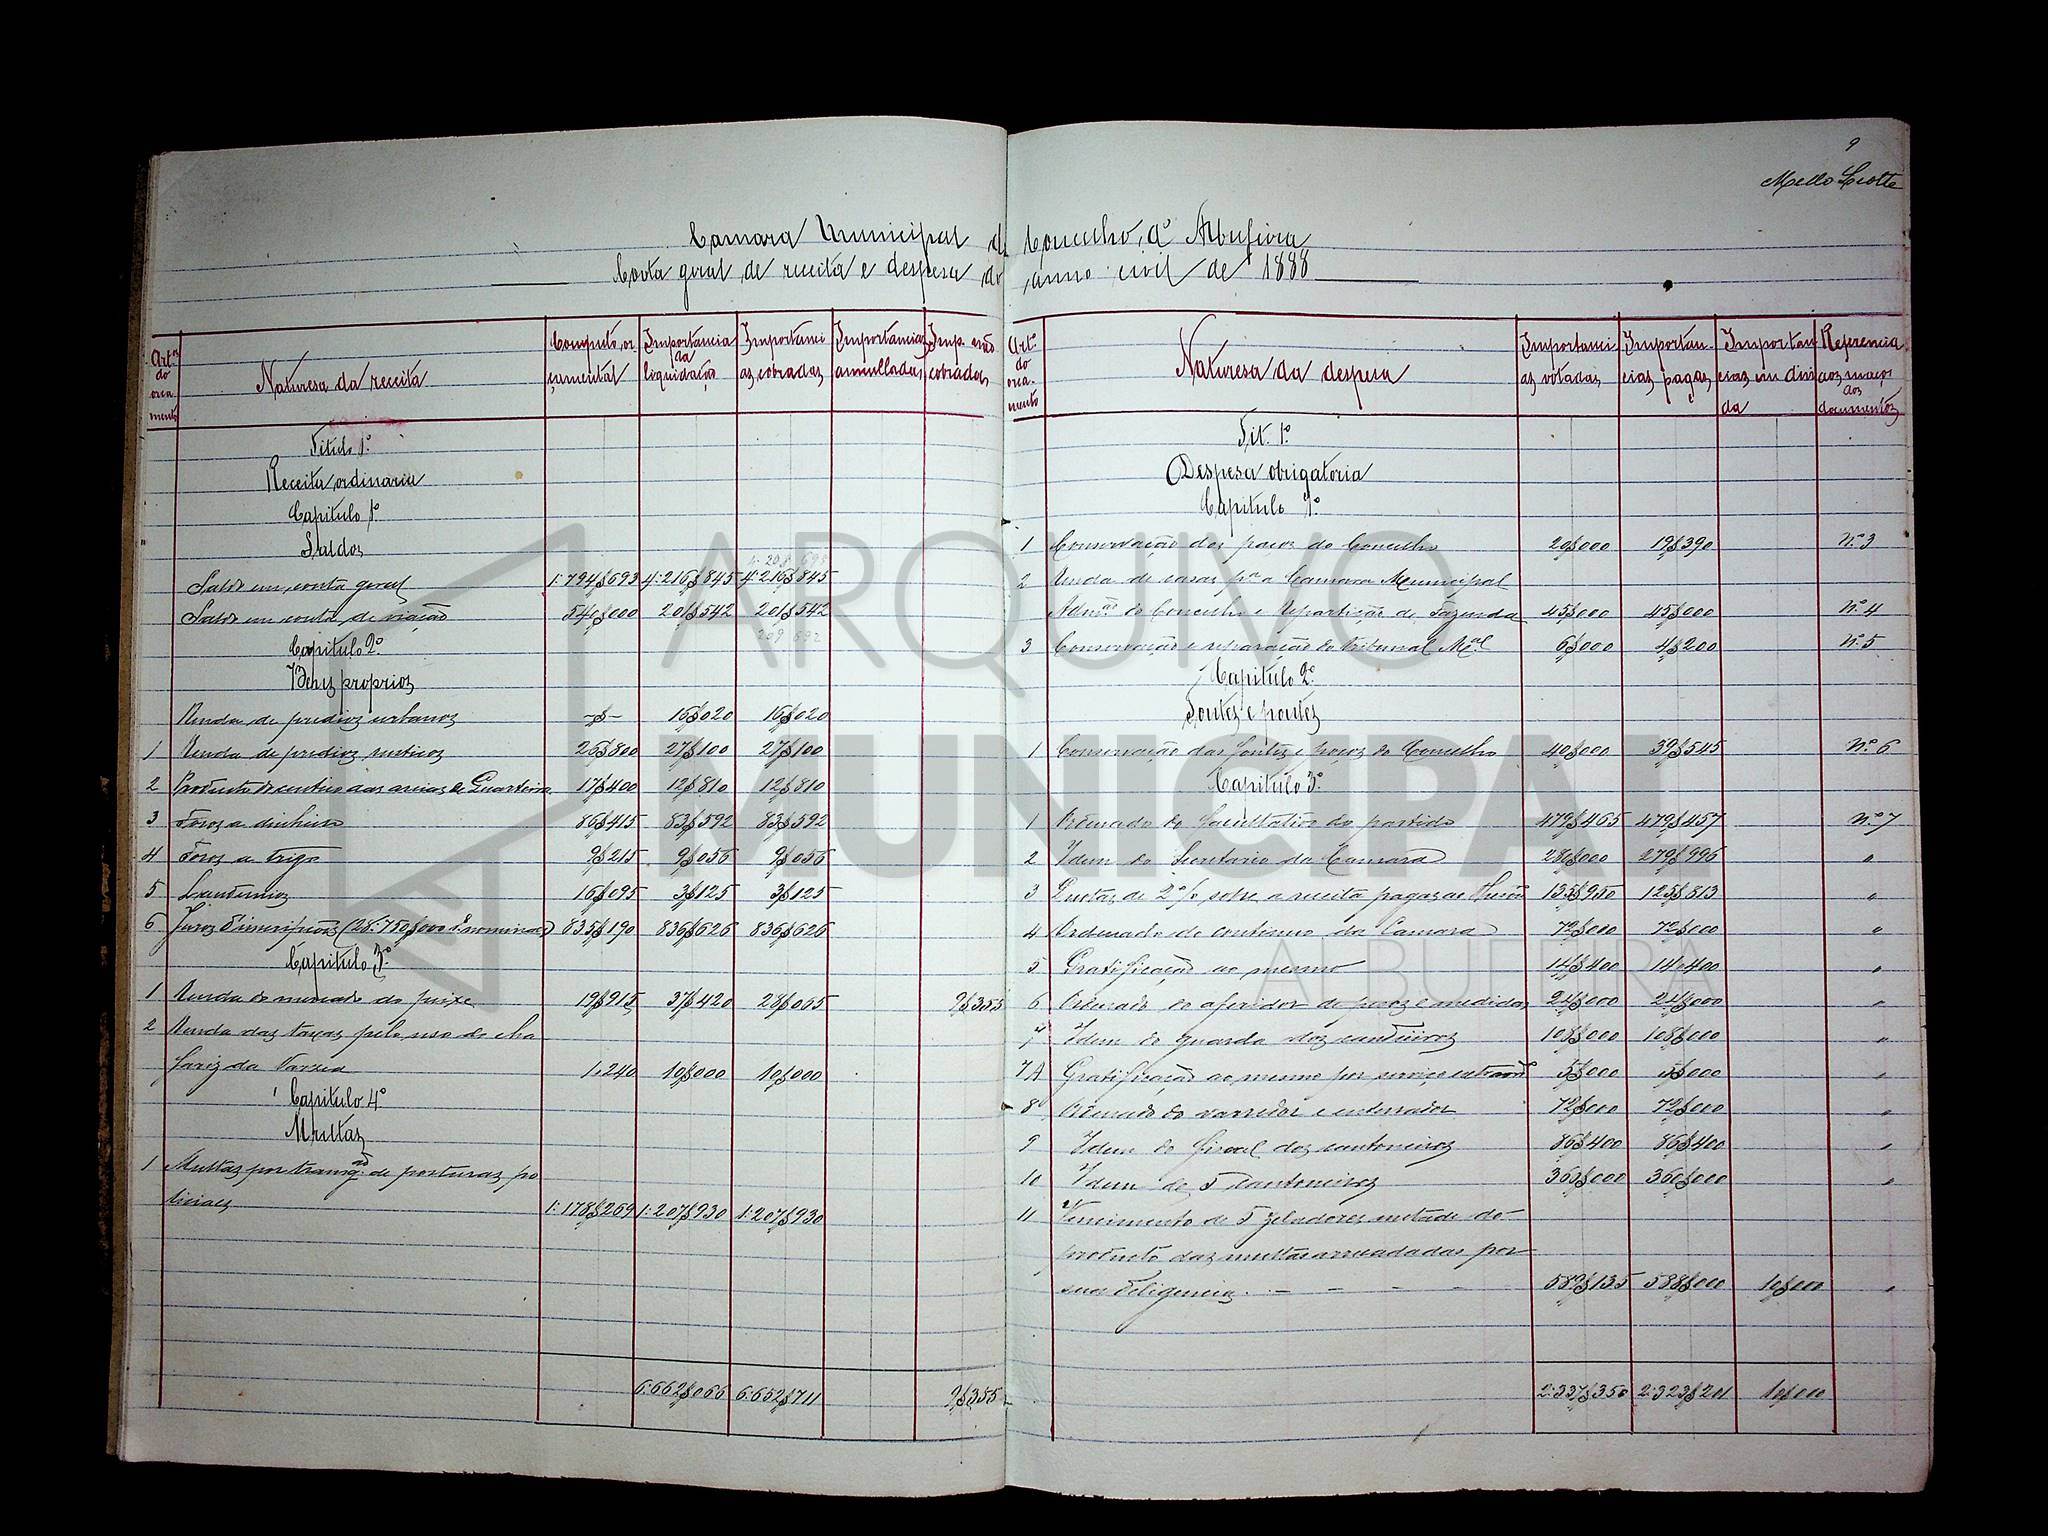 9
Mello Leotte
Camara Municipal do Concelho d' Albufeira
Conta geral de receita e despesa do anno civil de 1888
Art.os do orçamento | Naturesa da receita | Computo orçamental | Importancia da liquidação | Importancias cobradas | Importancias annulladas | Imp. não cobradas
Titulo 1.º
Receita ordinaria
Capitulo 1.º
Saldos
Saldo em conta geral 1:794$693 4:216$845 4:216$845
Saldo em conta de viação 540$000 201$542 201$542
Capitulo 2.º
Bens proprios
Renda de predios urbanos -$- 16$020 16$020
1 Renda de predios rusticos 26$800 27$100 27$100
2 Producto do centeio das areias de Quarteira 17$400 12$810 12$810
3 Foros a dinheiro 86$415 83$592 83$592
4 Foros a trigo 9$215 9$056 9$056
5 Laudemios 16$095 3$125 3$125
6 Juros d'inscripções (28:750$000 rs nominaes) 835$190 836$626 836$626
Capitulo 3.º
1 Renda do mercado do peixe 19$915 37$420 28$065 9$355
2 Renda das taxas pelo uso do cha
fariz da Varzea 1,240 10$000 10$000
Capitulo 4.º
Multas
1 Multas por transg.ão de posturas po
liciaes 1:178$269 1:207$930 1:207$930
6:662$066 6:652$711 9$355
Art.os do orçamento | Naturesa da despesa | Importancias votadas | Importancias pagas | Importancias em divida | Referencia aos maços dos documentos
Tit. 1.º
Despesa obrigatoria
Capitulo 1.º
1 Conservação dos paços do Concelho 20$000 19$390 N.º 3
2 Renda de casas p.a a Camara Municipal
Adm.ão do Concelho e Repartição de Fazenda 45$000 45$000 N.º 4
3 Conservação e reparação do tribunal M.al 6$000 4$200 N.º 5
Capitulo 2.º
Fontes e pontes
1 Conservação das fontes e poços do Concelho 40$000 39$545 N.º 6
Capitulo 3.º
1 Ordenado do facultativo do partido 479$465 479$457 N.º 7
2 Idem do Secretario da Camara 280$000 279$996 "
3 Quotas de 2% sobre a receita pagas ao 135$950 125$813 "
4 Ordenado do continuo da Camara 72$000 72$000 "
5 Gratificação ao mesmo 14$400 14$400 "
6 Ordenado do aferidor de pesos e medidas 24$000 24$000 "
7 Idem do guarda dos 108$000 108$000 "
7A Gratificação ao mesmo por serviço extraor.º 5$000 5$000 "
8 Ordenado do varredor e enterrador 72$000 72$000 "
9 Idem do fiscal dos cantoneiros 86$400 86$400 "
10 Idem de 5 cantoneiros 363$000 360$000 "
11 Vencimento de 5 zeladores metade do
producto das multas arrecadadas por
sua diligencia - - - - 589$135 588$000 10$000 "
2:337$350 2:323$201 10$000
ARQUIVO
MUNICIPAL
ALBUFEIRA